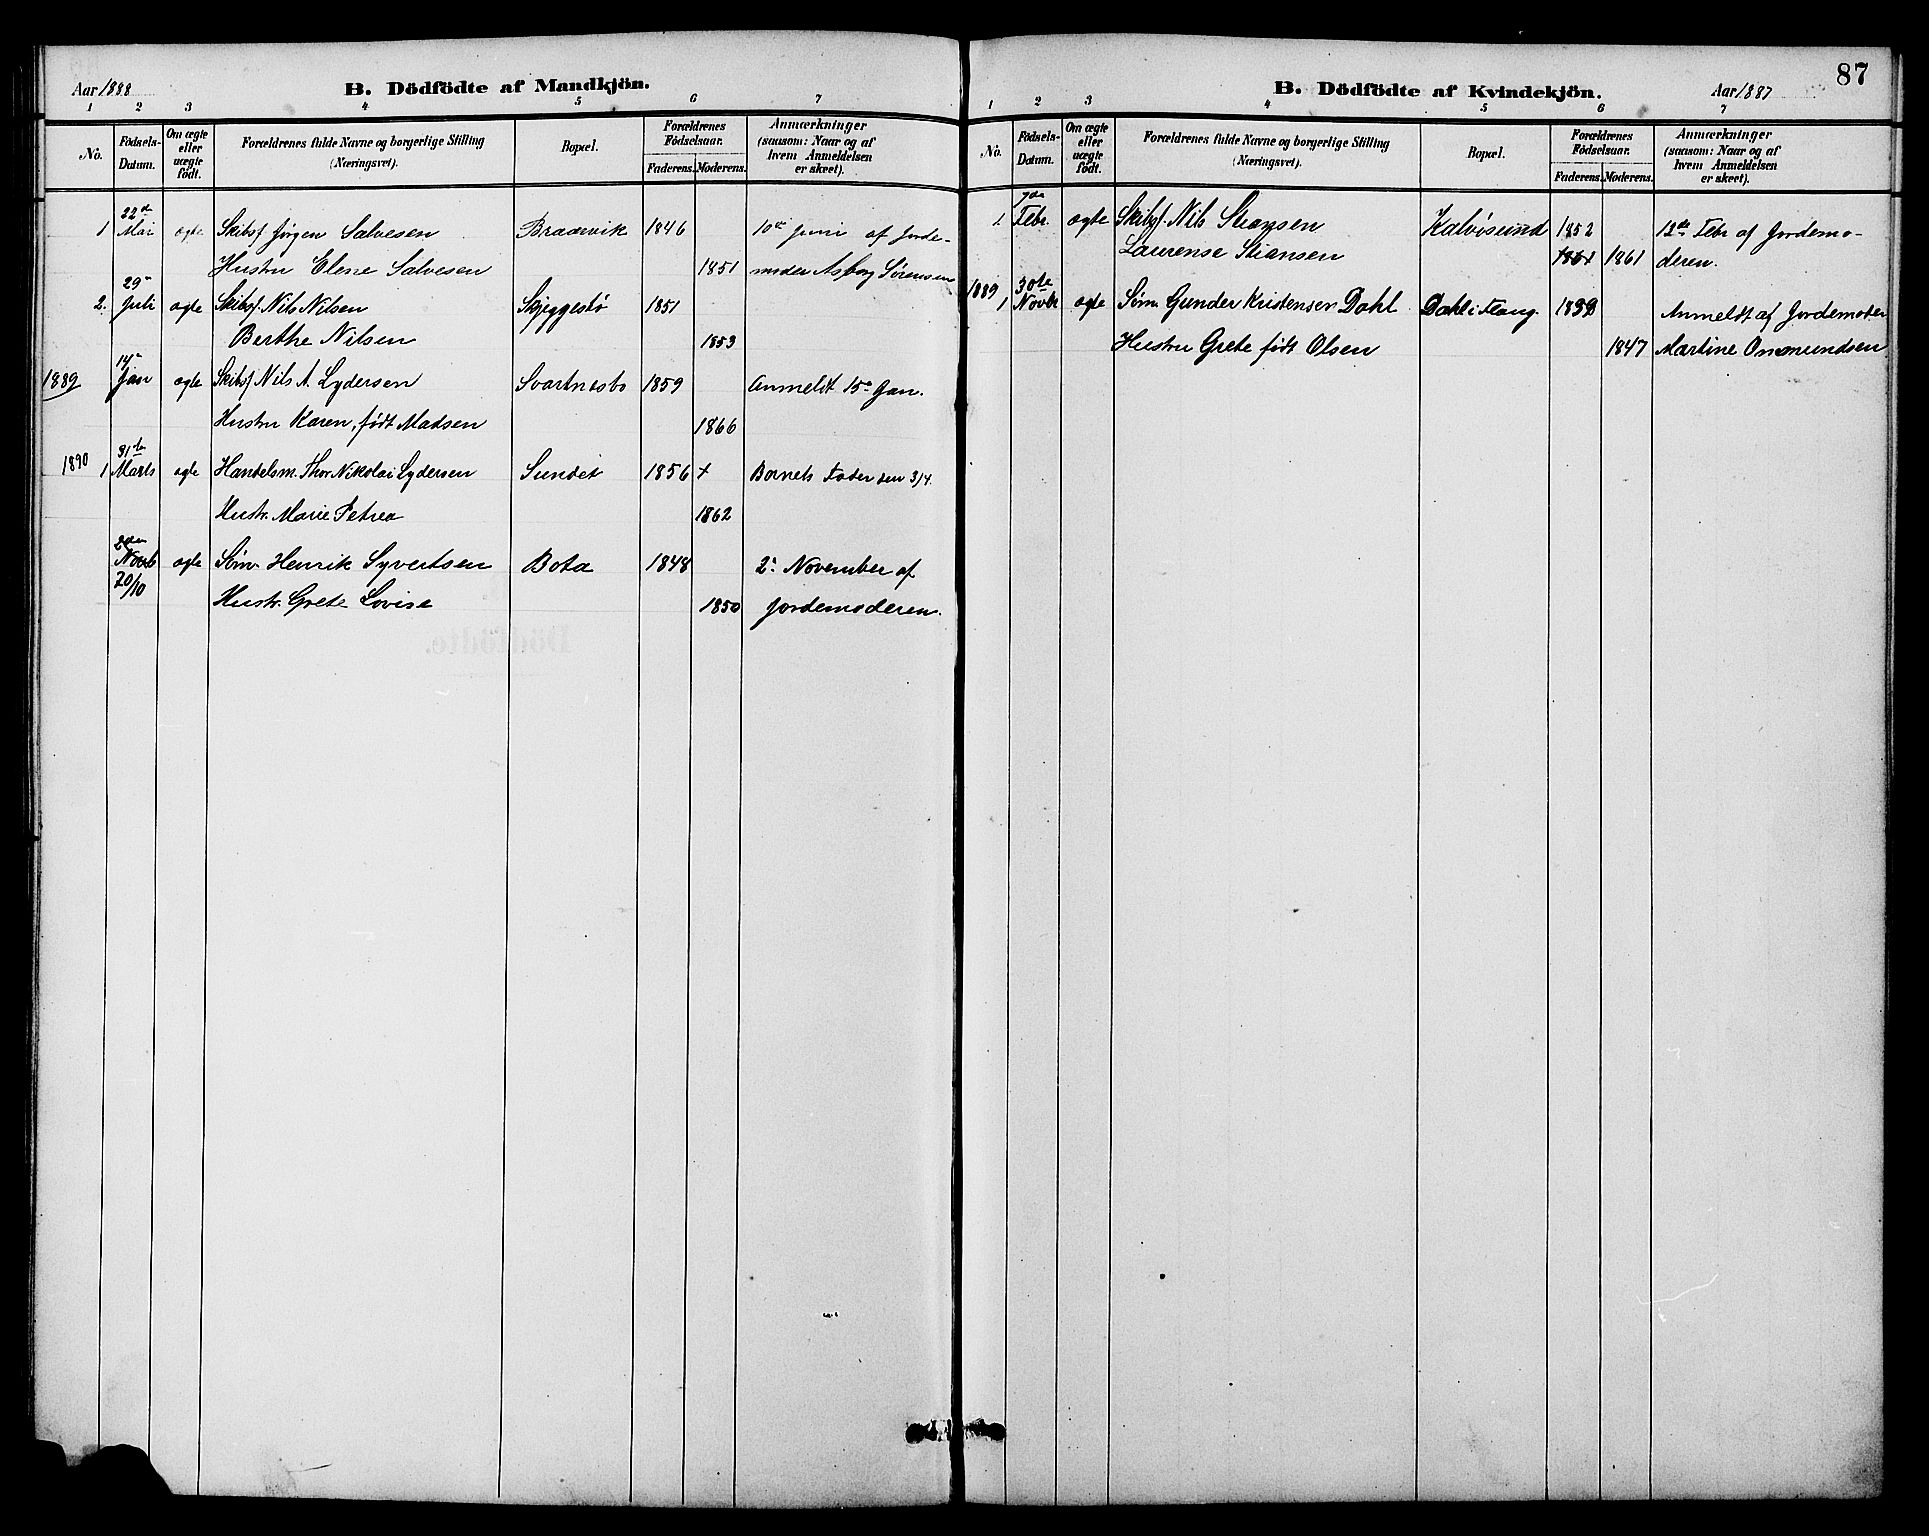 Aar 1888
B. Dödfödte af Mandkjön.
1 2 3 4 5 6 7
No.
Födsels-Datum.
Om ægte eller uægte födt.
Forældrenes fulde Navne og borgerlige Stilling (Næringsvei).
Bopæl.
Forældrenes Födselsaar.
Faderens. Moderens.
Anmærkninger (saasom: Naar og af hvem Anmeldelsen er skeet).
22de
1 Mai ægte Skibsf. Jørgen Salvesen Bradevik 1846 10de Juni af Jorde-
Hustru Elene Salvesen 1851 moder Asborg Sørensen
29de
2. Juli ægte Skibsf. Nils Nilsen Skjeggestø 1851
Berthe Nilsen 1853
14de
1889 Jan ægte Skibsf Nils A. Lydersen Svartnesbo 1859 Anmeldt 15de Jan.
Hustru Karen, født Madsen 1866
31te
1890 1 Marts ægte Handelsm. Thor Nikolai Lydersen Sundet 1856 + Barnets Fader den 3/4.
Hustr. Marie Petrea 1862
2den
Novb ægte Søm. Henrik Syvertsen Bota 1848 2. November af
20/10 Hustr. Grete Lovise 1850 Jordemoderen.
87
B. Dödfödte af Kvindekjön.
Aar 1887
1 2 3 4 5 6 7
No.
Födsels-Datum.
Om ægte eller uægte födt.
Forældrenes fulde Navne og borgerlige Stilling (Næringsvei).
Bopæl.
Forældrenes Födselsaar.
Faderens. Moderens.
Anmærkninger (saasom: Naar og af hvem Anmeldelsen er skeet).
7de
1. Febr. ægte Skibsf. Nils Stiansen Kalvøsund 1852 12te Febr af Jordemo-
Laurense Stiansen 1861 1861 deren.
1889 30te
1 Novbr ægte Søm. Gunder Kristensen Dahl Dahl i Flang. Anmeldt af Jordemoder
Hustru Grete født Olsen 1847 Martine Onsmundsen